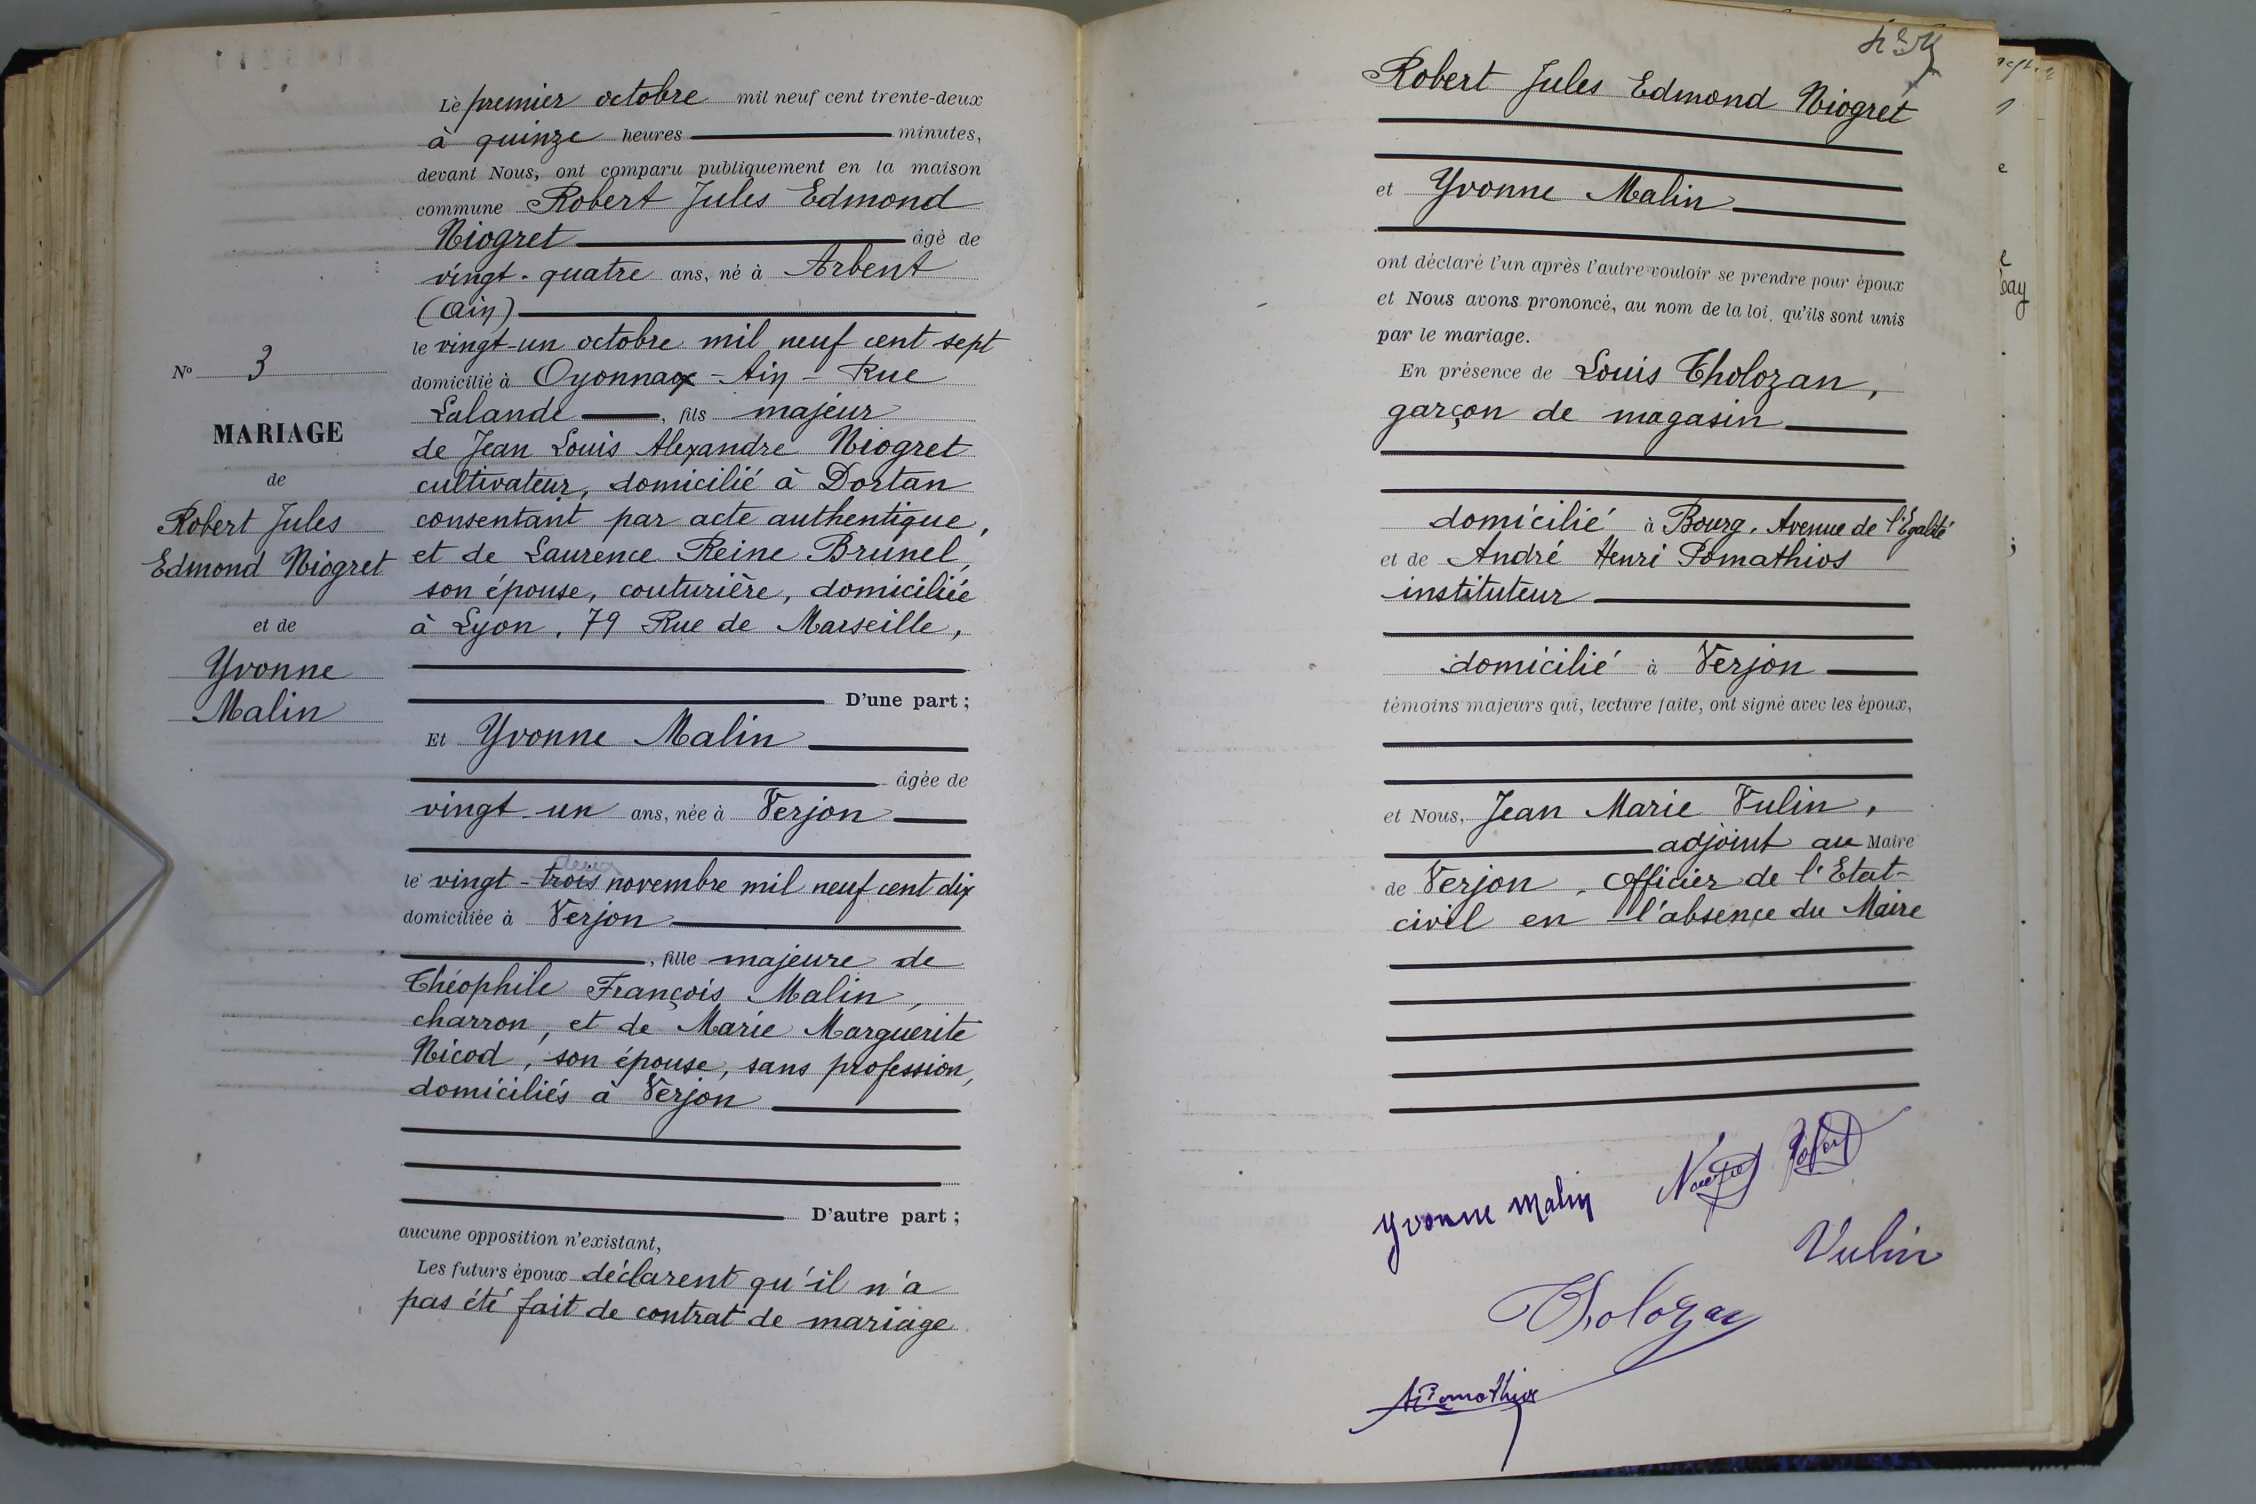 Le premier octobre mil neuf cent trente-deux
à quinze heures minutes,
devant Nous, ont comparu publiquement en la maison
commune Robert Jules Edmond
Niogret âgé de
vingt-quatre ans, né à Arbent
(Ain)
le vingt-un octobre mil neuf cent sept
domicilié à Oyonnax - Ain - Rue
Lalande, fils majeur
de Jean Louis Alexandre Niogret
cultivateur, domicilié à Dortan
consentant par acte authentique,
et de Laurence Reine Brunel,
son épouse, couturière, domiciliée
à Lyon, 79 Rue de Marseille,
D'une part ;
Et Yvonne Malin
âgée de
vingt-un ans, née à Verjon
deux
le vingt-trois novembre mil neuf cent dix
domiciliée à Verjon
, fille majeure de
Théophile François Malin,
charron, et de Marie Marguerite
Nicod, son épouse, sans profession,
domiciliés à Verjon
D'autre part ;
aucune opposition n'existant,
Les futurs époux déclarent qu'il n'a
pas été fait de contrat de mariage
No 3
MARIAGE
de
Robert Jules
Edmond Niogret
et de
Yvonne
Malin
Robert Jules Edmond Niogret
et Yvonne Malin
ont déclaré l'un après l'autre vouloir se prendre pour époux
et Nous avons prononcé, au nom de la loi, qu'ils sont unis
par le mariage.
En présence de Louis Tholozan,
garçon de magasin
domicilié à Bourg, Avenue de l'Egalité
et de André Henri Pomathios
instituteur
domicilié à Verjon
témoins majeurs qui, lecture faite, ont signé avec les époux,
et Nous, Jean Marie Vulin,
adjoint au Maire
de Verjon, Officier de l'Etat-
civil en l'absence du Maire
Yvonne Malin
Niogret Robert
Vulin
Tholozan
APomathios